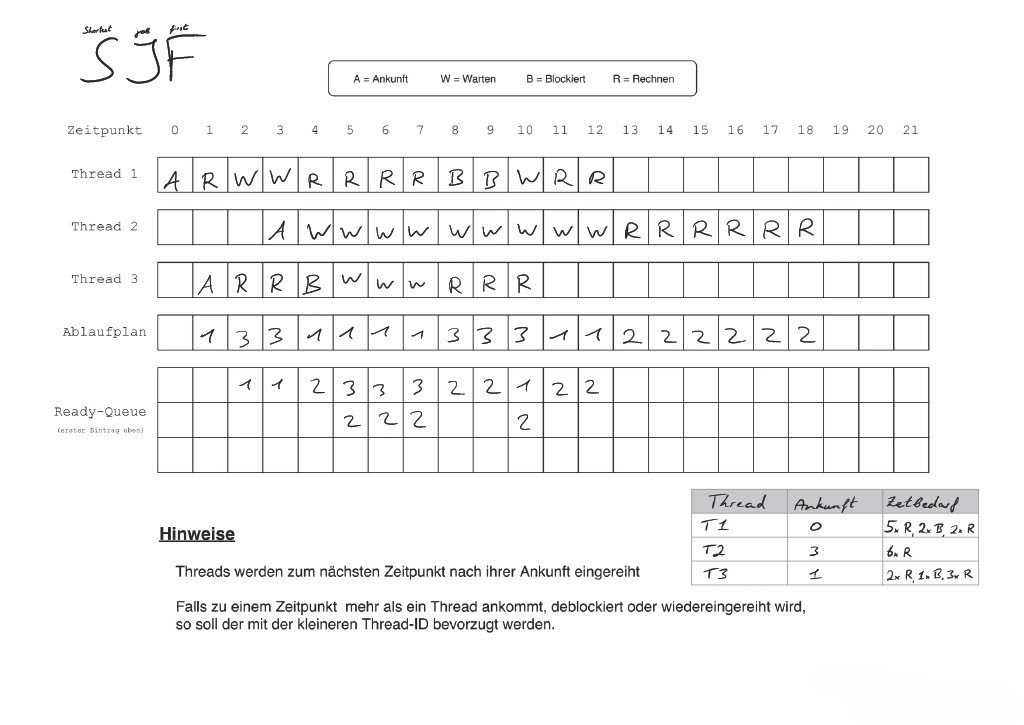 Shortest job first
SJF
A = Ankunft W = Warten B = Blockiert R = Rechnen
Zeitpunkt 0 1 2 3 4 5 6 7 8 9 10 11 12 13 14 15 16 17 18 19 20 21
Thread 1 A R W W R R R R B B W R R
Thread 2 A W W W W W W W W W R R R R R R
Thread 3 A R R B W W W R R R
Ablaufplan 1 3 3 1 1 1 1 3 3 3 1 1 2 2 2 2 2 2
1 1 2 3 3 3 2 2 1 2 2
Ready-Queue 2 2 2 2
(erster Eintrag oben)
Thread Ankunft Zeitbedarf
T1 0 5x R, 2x B, 2x R
T2 3 6x R
T3 1 2x R, 1x B, 3x R
Hinweise
Threads werden zum nächsten Zeitpunkt nach ihrer Ankunft eingereiht
Falls zu einem Zeitpunkt mehr als ein Thread ankommt, deblockiert oder wiedereingereiht wird,
so soll der mit der kleineren Thread-ID bevorzugt werden.